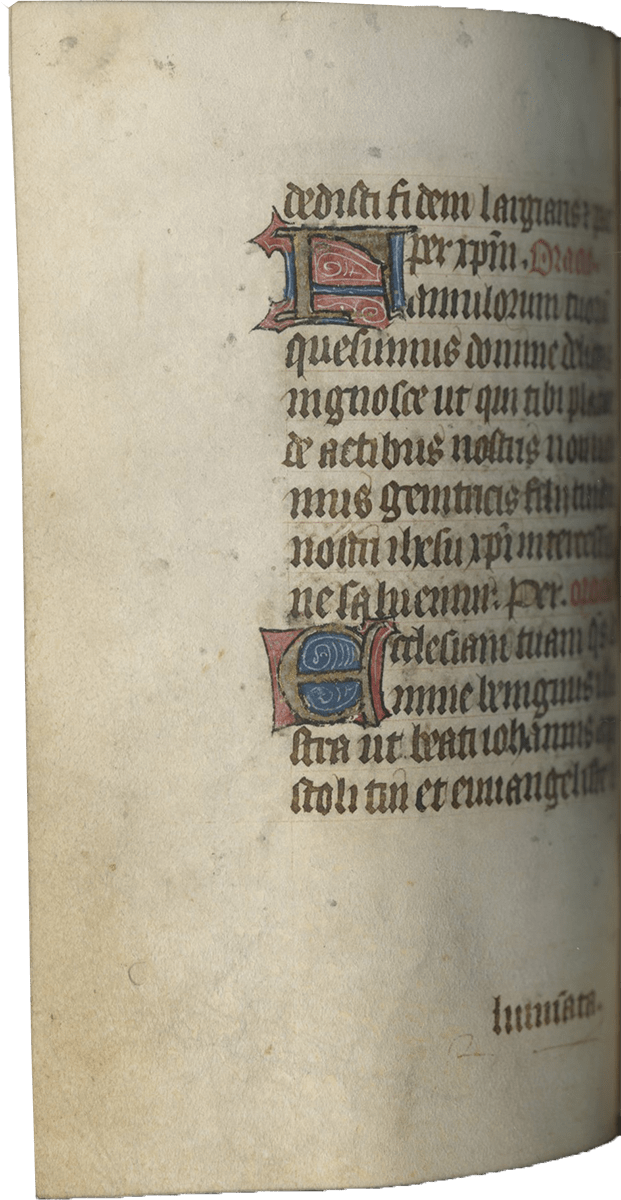 dedisti fidem largiaris ⁊
per xp̄m. Oracio.
Famulorum tuorū
quesumus domine
ingnosce ut qui tibi
de actibus nostris non
mus genitricis filij tui
nostri ihesu xp̄i intercessio
ne saluemur. Per. oracio
Ecclesiam tuam qs̄
mine benignus
stra ut beati iohannis apo
stoli tui et euuangeliste
lumīata.